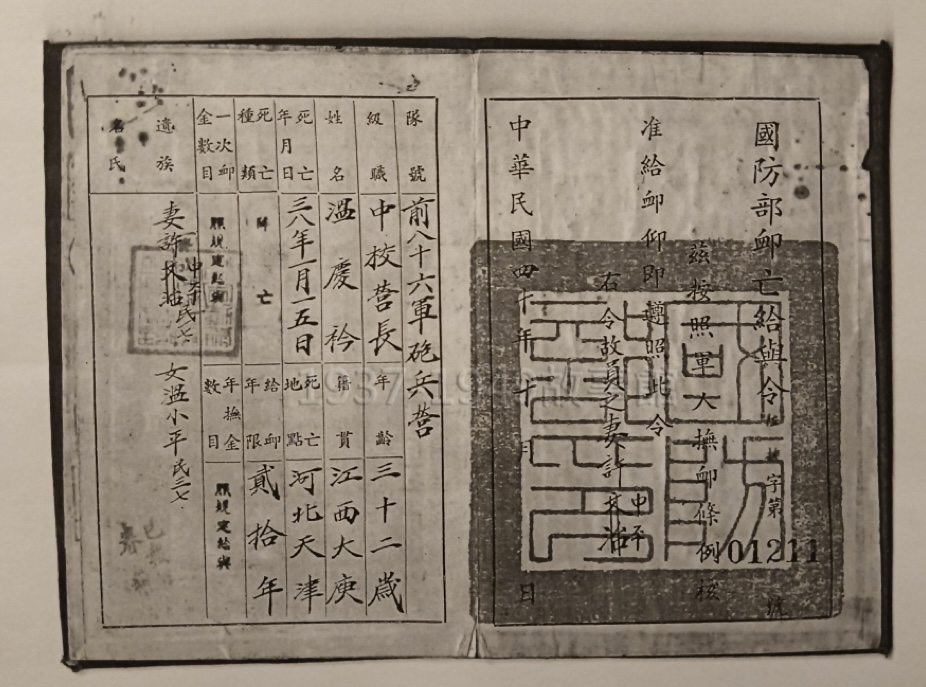 國防部卹亡給與令
字第01211號
茲按照軍人撫卹條例核
准給卹仰即遵照此令
右令故員之妻許
中華民國四十年十月 日
隊號 前八十六軍砲兵營
級職 中校營長 年齡 三十二歲
姓名 溫慶衿 籍貫 江西大庾
死亡年月日 三八年一月一五日 死亡地點 河北天津
死亡種類 陣亡 給卹年限 貳拾年
一次卹金數目 照規定給與 年撫金數目 照規定給與
遺族名氏 妻許 女溫小平 民三七